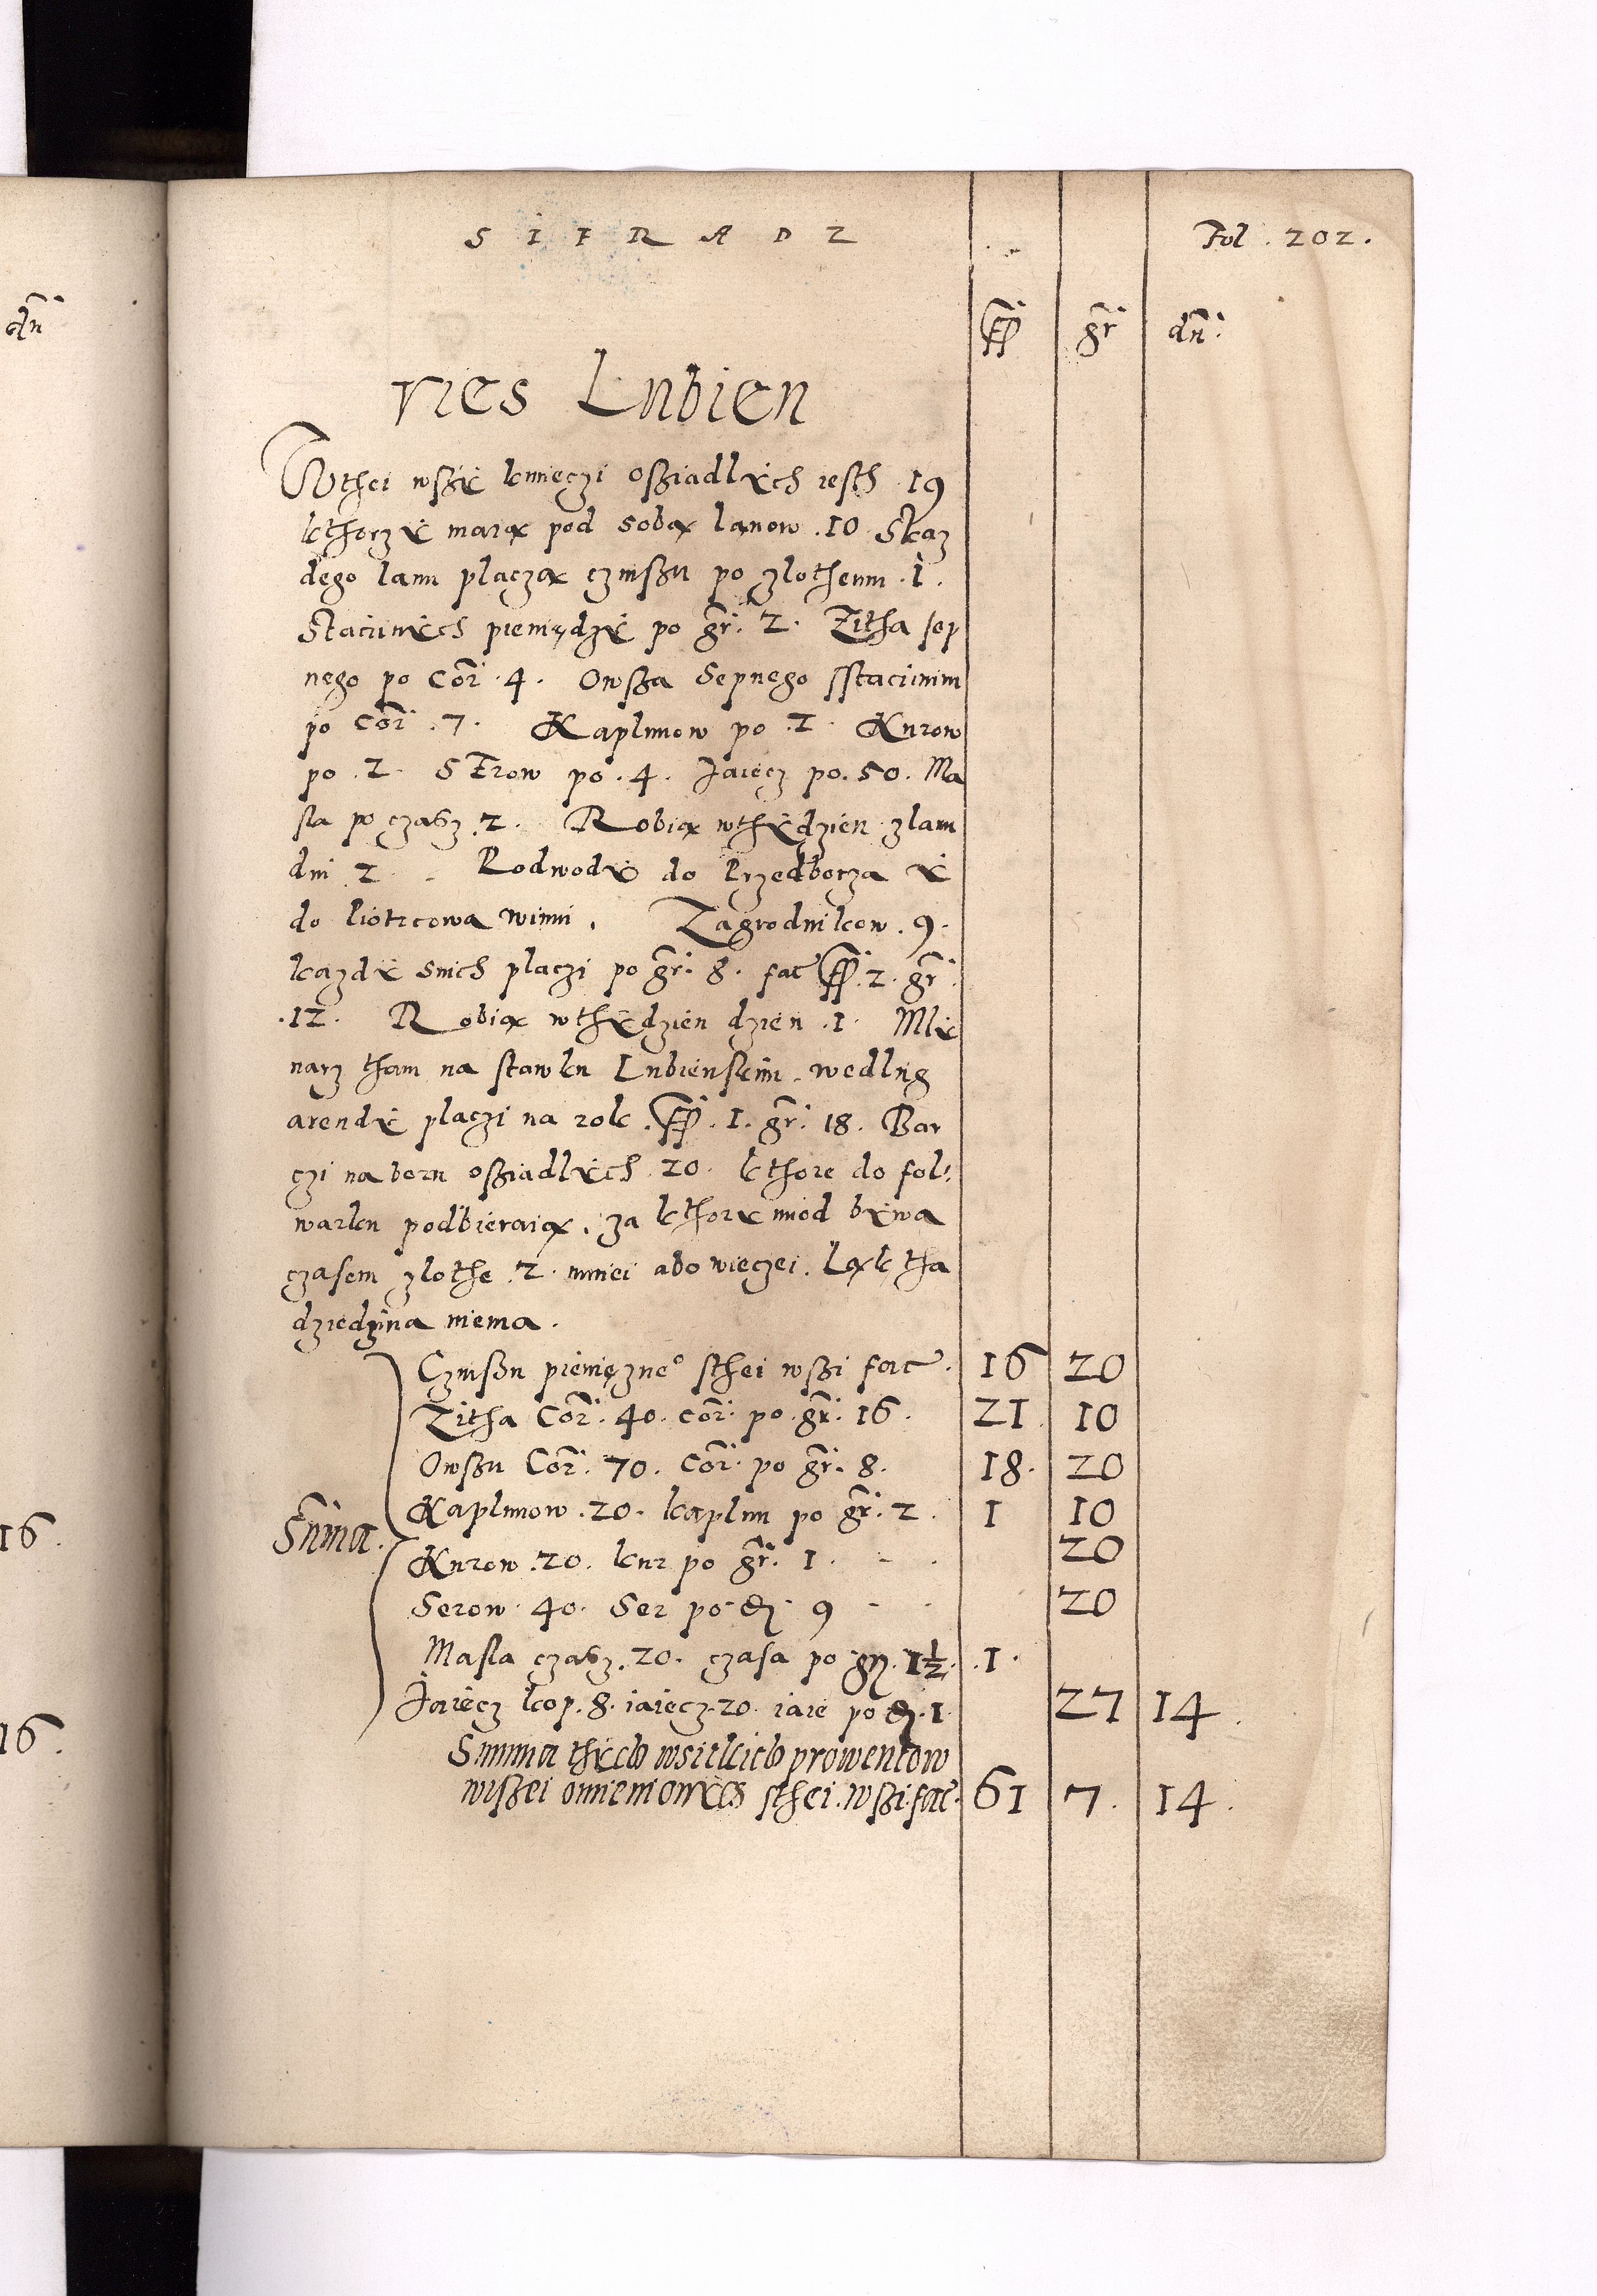 dn̄
16.
16.
SIERADZ
Fol. 202.
ff gr̄ dn̄.
Vies Lubien
Wthei wßÿ kmieczi oßiadlÿch iesth 19
kthorzÿ maią pod sobą lanow .10 Skaz
dego lanu placzą czinßu po zlothemu .1.
Staciinÿch pieniędzÿ po gr̄. 2. Zitha sep
nego po Cor̄. 4. Owßa Sepnego sstaciinim
po Cor̄. 7. Kaplunow po .2. Kurow
po .2. SErow po .4. Jaiecz po .50. Ma
sla po czasz .2. Robią wthÿdzien zlanu
dni 2. Podwodÿ do Przedborza ÿ
do Piotrcowa winni. Zagrodnikow .9.
kazdÿ snich placzi po gr̄. 8. fac ff. 2. gr̄.
.12. Robią wthÿdzien dzien .1. Mlÿ
narz tham na stawku Lubienskim, wedlug
arendÿ placzi na rok. ff. 1. gr̄. 18. Bar
czi na boru oßiadlÿch .20. kthore do fol:
warku podbieraią, za kthorÿ miod bÿwa
czasem zlothe .2. mniei abo wieczei. Ląk tha
dziedzina niema.
Czinßu pienięzne° sthei wßi fac. 16 20
Zitha Cor̄. 40. cor̄. po gr̄. 16. 21 10
Owßu Cor̄. 70. Cor̄. po gr̄. 8. 18. 20
Kaplunow .20. kaplun po gr̄. 2. 1 10
Sum̄a.
Kurow .20. kur po gr̄. 1. 20
Serow. 40. Ser po đ. 9 20
Masla czasz .20. czasa po gr. 1½. .1.
Jaiecz kop. 8. iaiecz 20. iaie po đ. 1. 27 14.
Summa thÿch wsitkich prowentow
wißei omienionÿch sthei wßi fac. 61 7. 14.